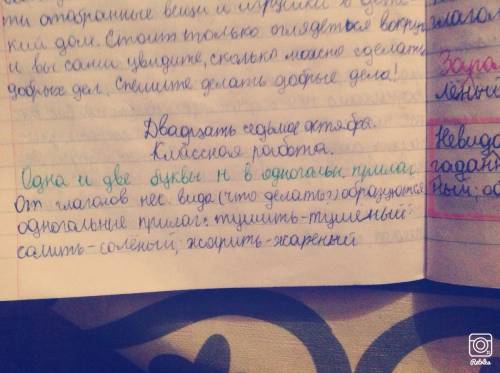 ти отобранные вещи и игрушки в детс
кий дом. Стоит только оглядеться вокруг
и вы сами увидите, сколько можно сделать
добрых дел. Спешите делать добрые дела!
Двадцать седьмое октября.
Классная работа.
Одна и две буквы н в одноголь прилаг
От глаголов нес. вида (что делать?) образуются
одногольные прилаг: тушить-тушеный
салить-солёный, жарить-жареный
глагол
лёный
Невидо
гадан
ным, ос
Retrica